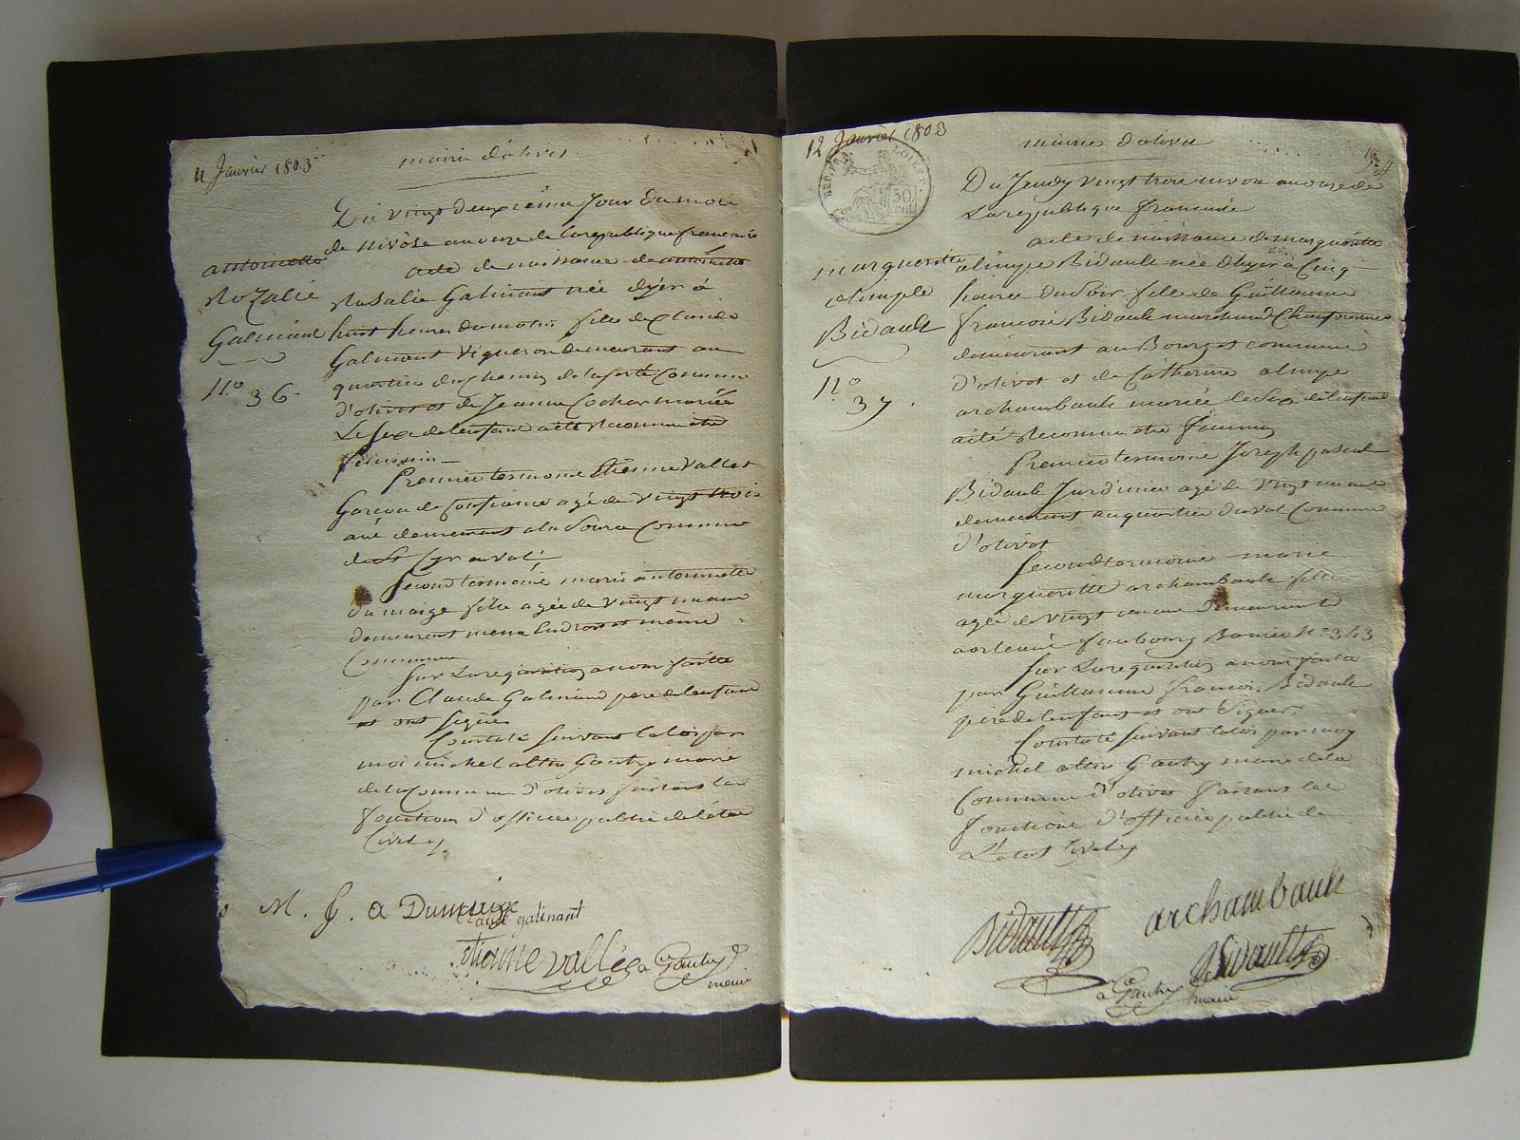 11 Janvier 1803
mairie d'olivet
Du vingt deuxième Jour du mois
de nivôse an onze de la republique francaise
acte de naissance de antoinette
antoinette
Rozalie
Galinant
n.o 36.
Rosalie Galinant née dyer à
huit heures du matin fille de Claude
Galinant Vigneron demeurant au
quartier du chemin de la ferté Commune
d'olivet et de Jeanne Cochar mariée
Le sexe de lenfant a été Reconnu être
féminin
Premier temoine Etienne Vallet
Garçon de Confiance agé de vingt trois
ans demeurant a la Source Commune
de St Cyr en val
Second temoine marie antoinette
dumaige fille agée de vingt un ans
demeurant meme Endroit et même
Commune
Sur La requisition a nous faitte
par Claude Galinand pere de lenfant
et ont signés
Constaté suivant la loi par
moi michel alten Gautry maire
de la Commune d'olivet faisant les
fonctions d'officier public de l'état
Civil
M. J. a Dumaige
claude galinant
etienne vallée
Gautry
maire
12 Janvier 1803
mairie d'olivet
Du Jeudy vingt trois nivose an onze de
La republique francaise
acte de naissance de marguerite
marguerite
olimple
Bidault
n.o 37.
olimpe Bidault née dhyer à Cinq
heures du Soir fille de Guillaume
francois Bidault marchand Chaufournier
demeurant au Bourg et commune
d'olivet et de Catherine olimpe
archambault mariée le Sexe de lenfant
a été Reconnu etre feminin
Premier temoine Joseph pascal
Bidault Jardinier agé de vingt un ans
demeurant au quartier du val Commune
d'olivet
Second temoine marie
marguerite archambault fille
agé de vingt demeurant
a orleans faubourg Banier N.o 343
Sur La requisition a nous faite
par Guillaume francois Bidault
pere de lenfant et ont Signer
Constaté suivant la loi par moy
michel alten Gautry maire de la
Commune d'olivet faisant les
fonctions d'officier public de
L'etat Civil
Bidault
archambault
Bidault
Gautry
maire